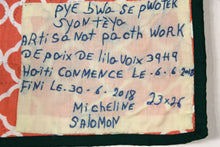 PYE BWA SE PWOTEK
SYON TÈYO
ARTISANOT PATCH WORK
DEPAIX DE lila VOIX 39H9
Haïti CONMENCE LE-6-6 2018
FINI LE.30-6-2018
Micheline 23x26
SALOMON